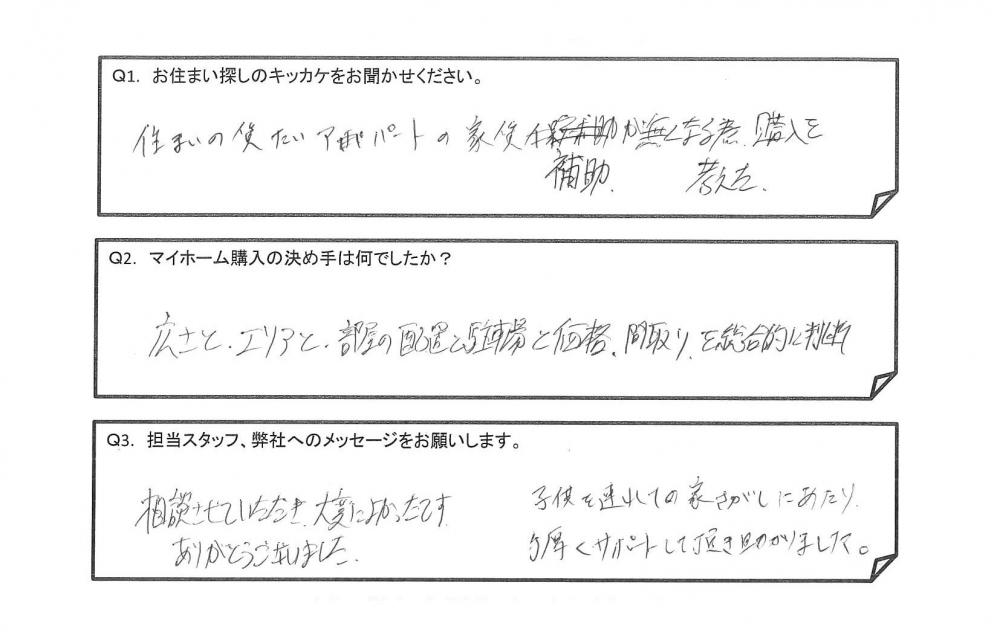 Q1. お住まい探しのキッカケをお聞かせください。
住まいの貸たいアパートの家賃が無くなる為、購入を
補助. 考えた.
Q2. マイホーム購入の決め手は何でしたか？
広さと、エリアと、部屋の配置と駐車場と価格、間取り、を総合的に判断
Q3. 担当スタッフ、弊社へのメッセージをお願いします。
相談させていただき、大変によかったです
ありがとうございました.
子供を連れての家さがしにあたり、
手厚くサポートして頂き助かりました。